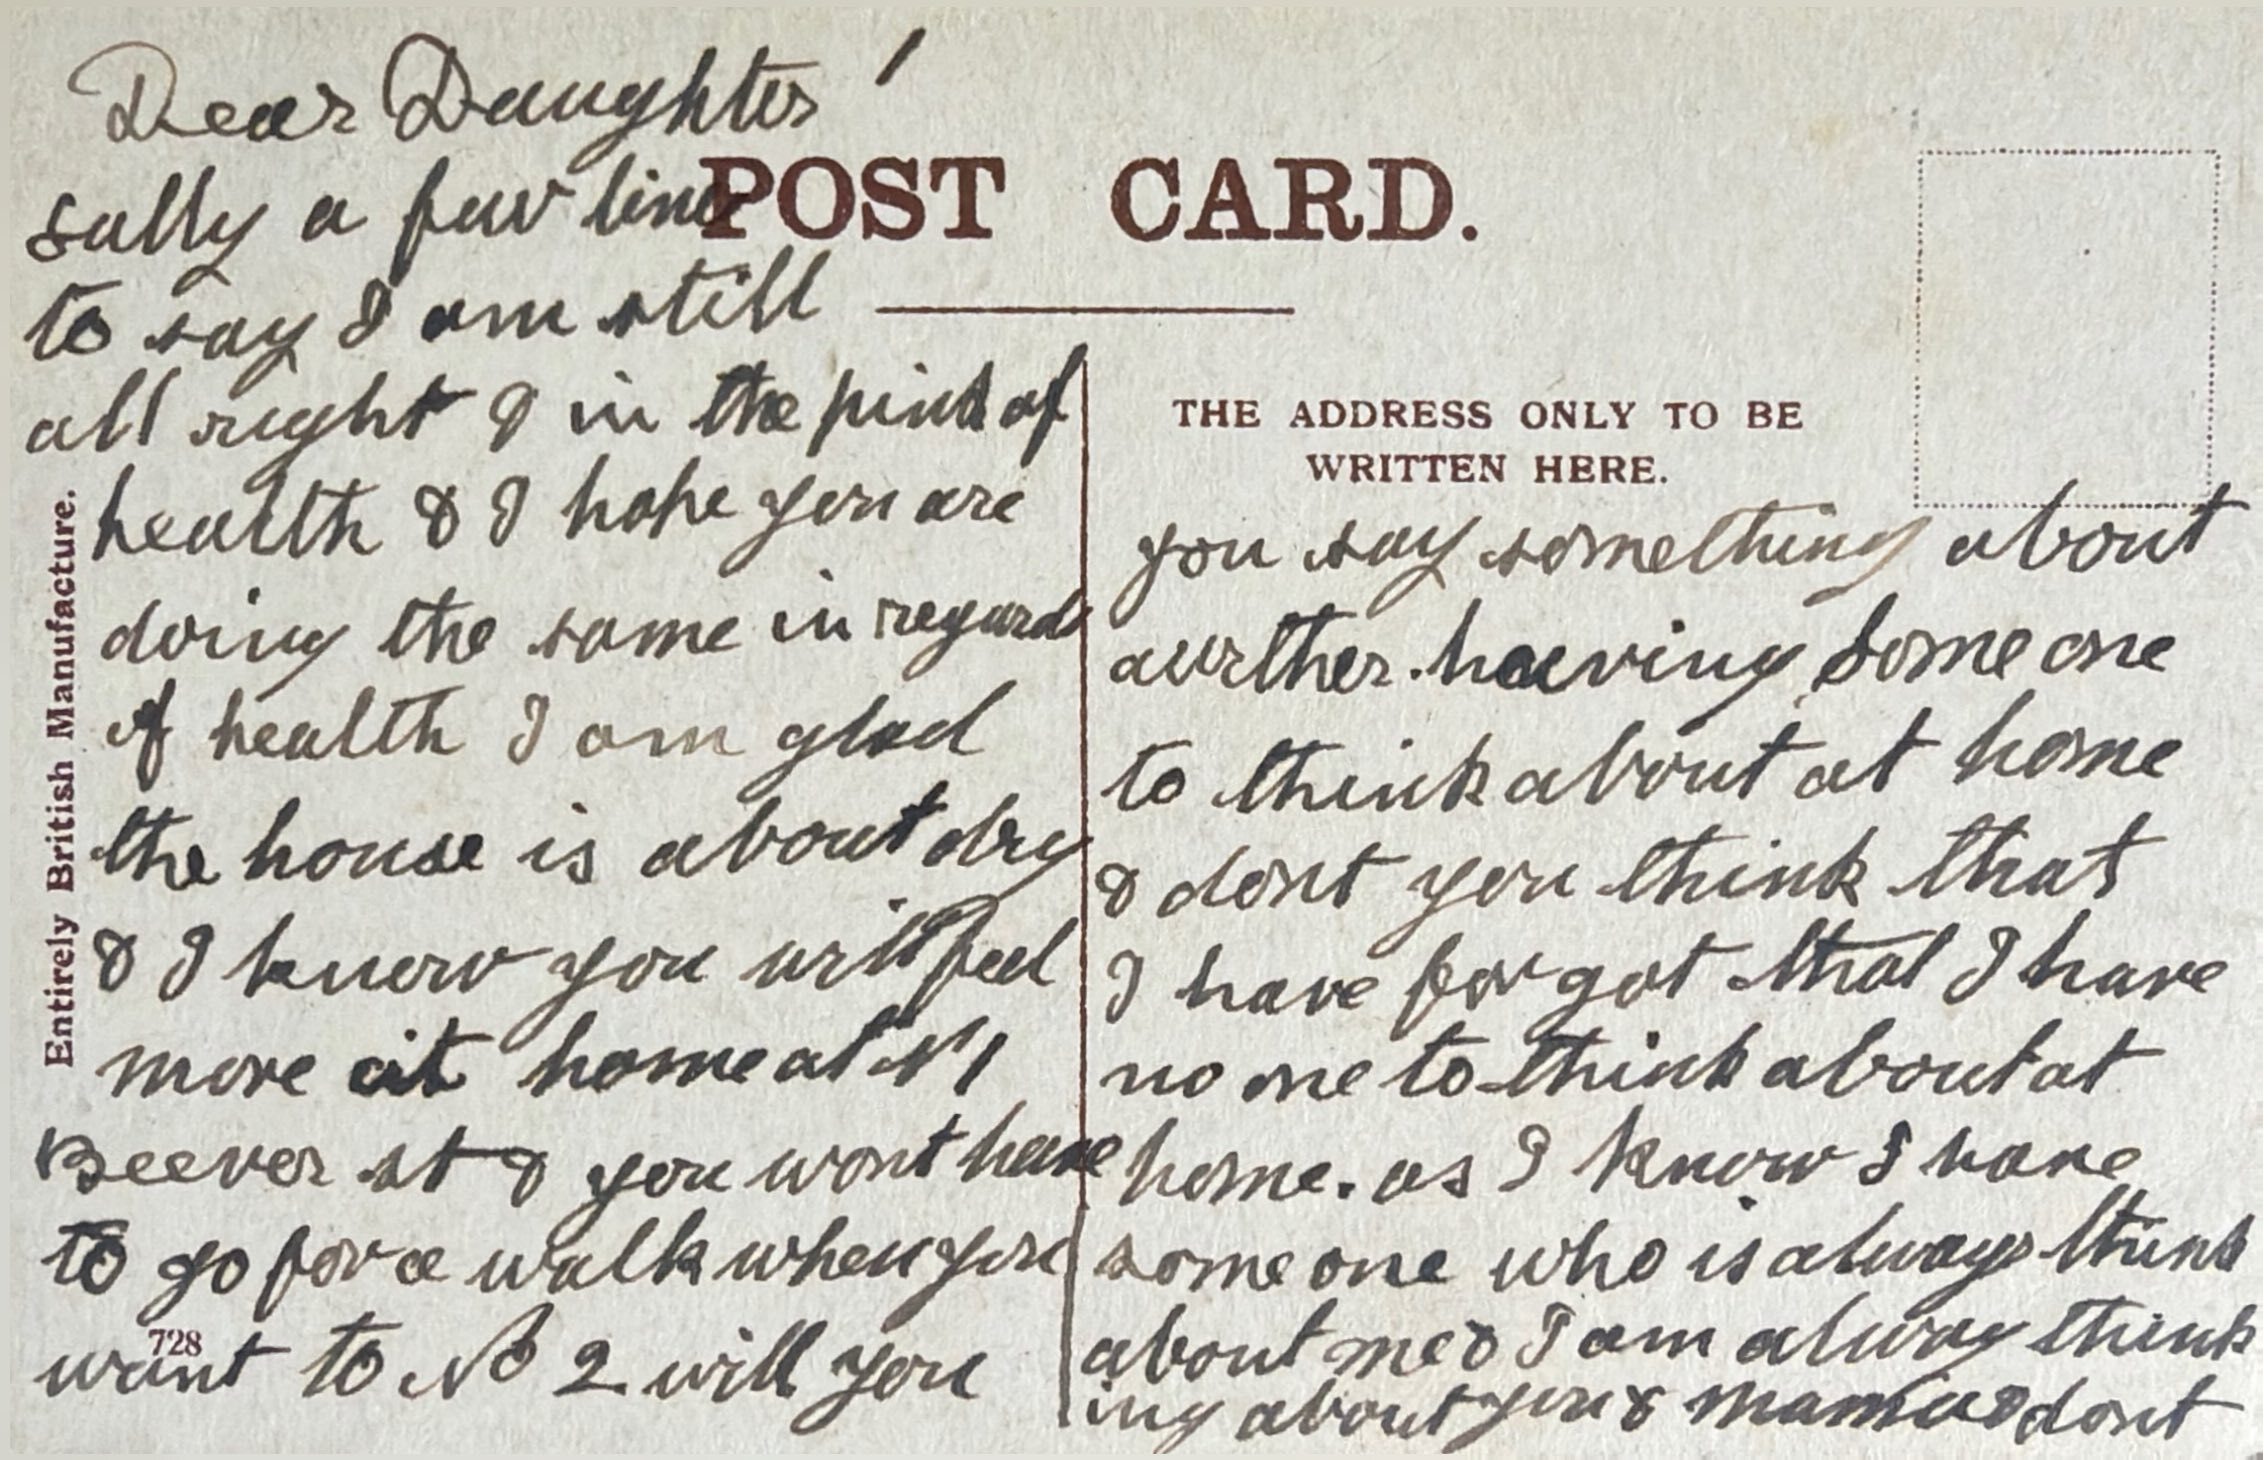 Dear Daughter 1
POST CARD.
Sally a few lines
to say I am still
all right & in the pink of
health & I hope you are
doing the same in regards
of health I am glad
the house is about dry
& I know you will feel
more at home at No 1
Beever st & you wont have
to go for a walk when you
want to No 2 will you
728
Entirely British Manufacture.
THE ADDRESS ONLY TO BE
WRITTEN HERE.
you say something about
aurther. having some one
to think about at home
& dont you think that
I have forgot that I have
no one to think about at
home. as I know I have
some one who is always think
about me & I am alway think
ing about you & mamie & dont